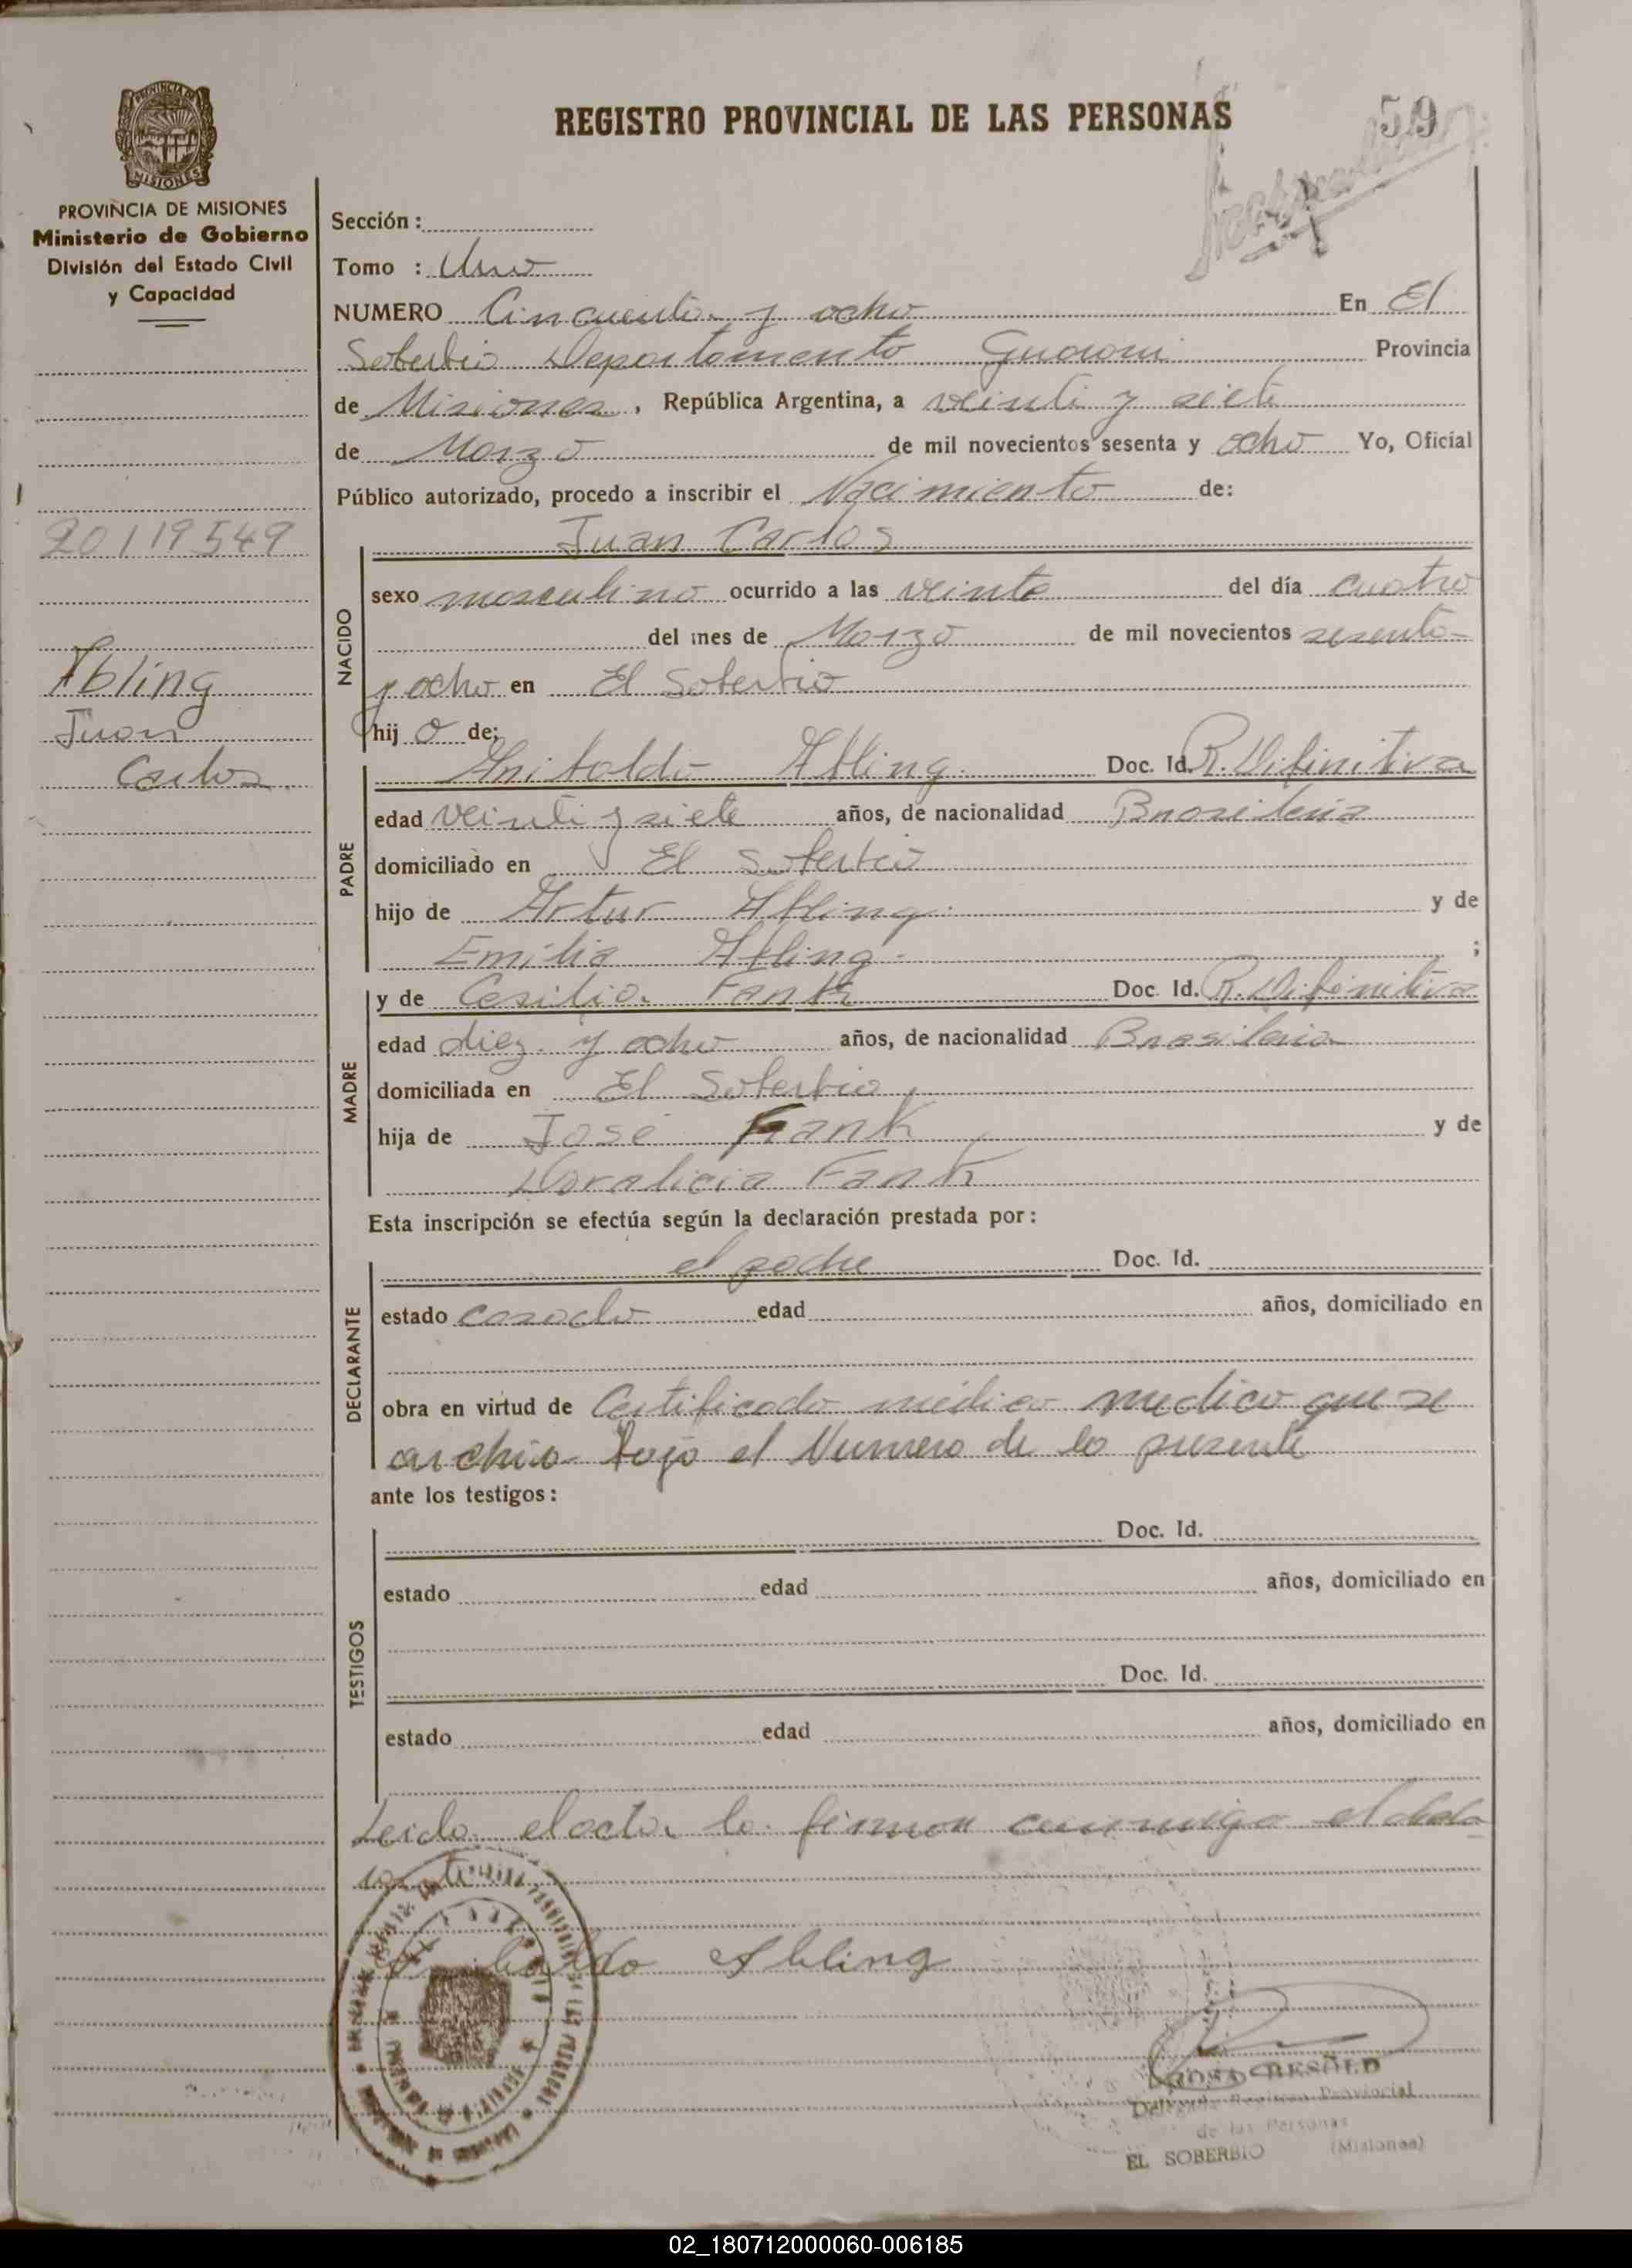 REGISTRO PROVINCIAL DE LAS PERSONAS
59
PROVINCIA DE MISIONES
Ministerio de Gobierno
División del Estado Civil
y Capacidad
20119549
Abling
Juan
Carlos
Sección :
Tomo : Uno
NUMERO Cincuenta y ocho En El
Soberbio Departamento Guarani Provincia
de Misiones, República Argentina, a veinti y siete
de Marzo de mil novecientos sesenta y ocho Yo, Oficial
Público autorizado, procedo a inscribir el Nacimiento de:
Juan Carlos
NACIDO
sexo masculino ocurrido a las veinte del día cuatro
del mes de Marzo de mil novecientos sesenta
y ocho en El Soberbio
hij o de;
PADRE
Abling Doc. Id. R. Difinitiva
edad veinti y siete años, de nacionalidad Brasileña
domiciliado en El Soberbio
hijo de Artur Abling y de
Emilia Abling ;
MADRE
y de Cesilia Fank Doc. Id. R. Difinitiva
edad diez y ocho años, de nacionalidad Brasileña
domiciliada en El Soberbio
hija de José Fank y de
Doralicia Fank
Esta inscripción se efectúa según la declaración prestada por :
DECLARANTE
el padre Doc. Id.
estado casado edad años, domiciliado en
obra en virtud de Certificado médico medico que se
archiva bajo el Numero de la presente
ante los testigos :
TESTIGOS
Doc. Id.
estado edad años, domiciliado en
Doc. Id.
estado edad años, domiciliado en
Leida el acta la firman conmigo el decla
rante
Abling
Provincial
de las Personas
EL SOBERBIO (Misiones)
02_180712000060-006185